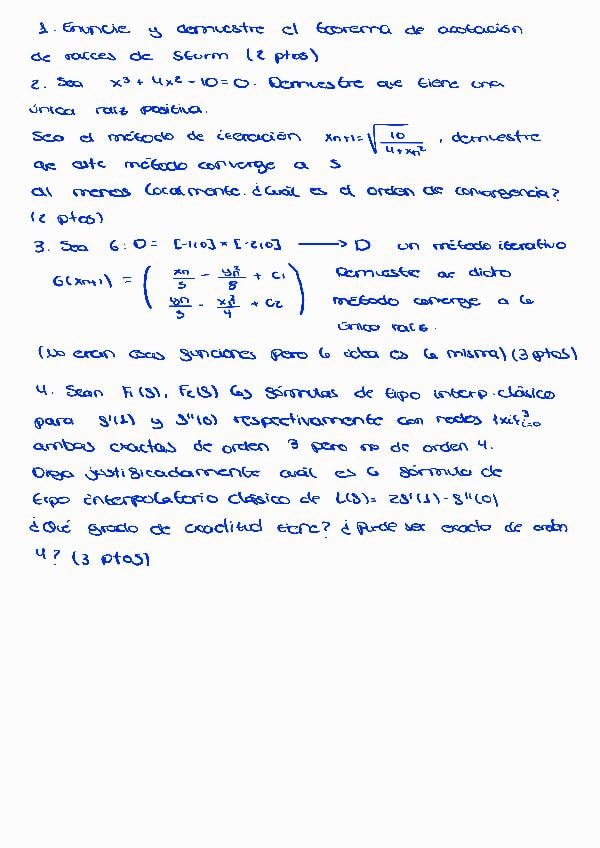 1. Enuncie y demuestre el teorema de acotación
de raíces de Sturm (2 ptos)
2. Sea x³ + 4x² - 10 = 0. Demuestre que tiene una
única raiz positiva.
Sea el método de iteración xn+1 = √(10/(4+xn²)), demuestre
que este método converge a s
al menos localmente. ¿Cuál es el orden de convergencia?
(2 ptos)
3. Sea G: D = [-1,0] × [-2,0] ⟶ D un método iterativo
G(xn+1) = ( xn/3 - yn³/8 + c1 Demuestre que dicho
yn/3 - xn³/4 + c2 ) método converge a la
única raíz.
(No eran esas funciones pero la idea es la misma) (3 ptos)
4. Sean F1(f), F2(f) las fórmulas de tipo interp. clásico
para f'(1) y f''(0) respectivamente con nodos {xi}³i=0
ambas exactas de orden 3 pero no de orden 4.
Diga justificadamente cuál es la fórmula de
tipo interpolatorio clásico de L(f) = 2f'(1) - f''(0)
¿Qué grado de exactitud tiene? ¿Puede ser exacto de orden
4? (3 ptos)